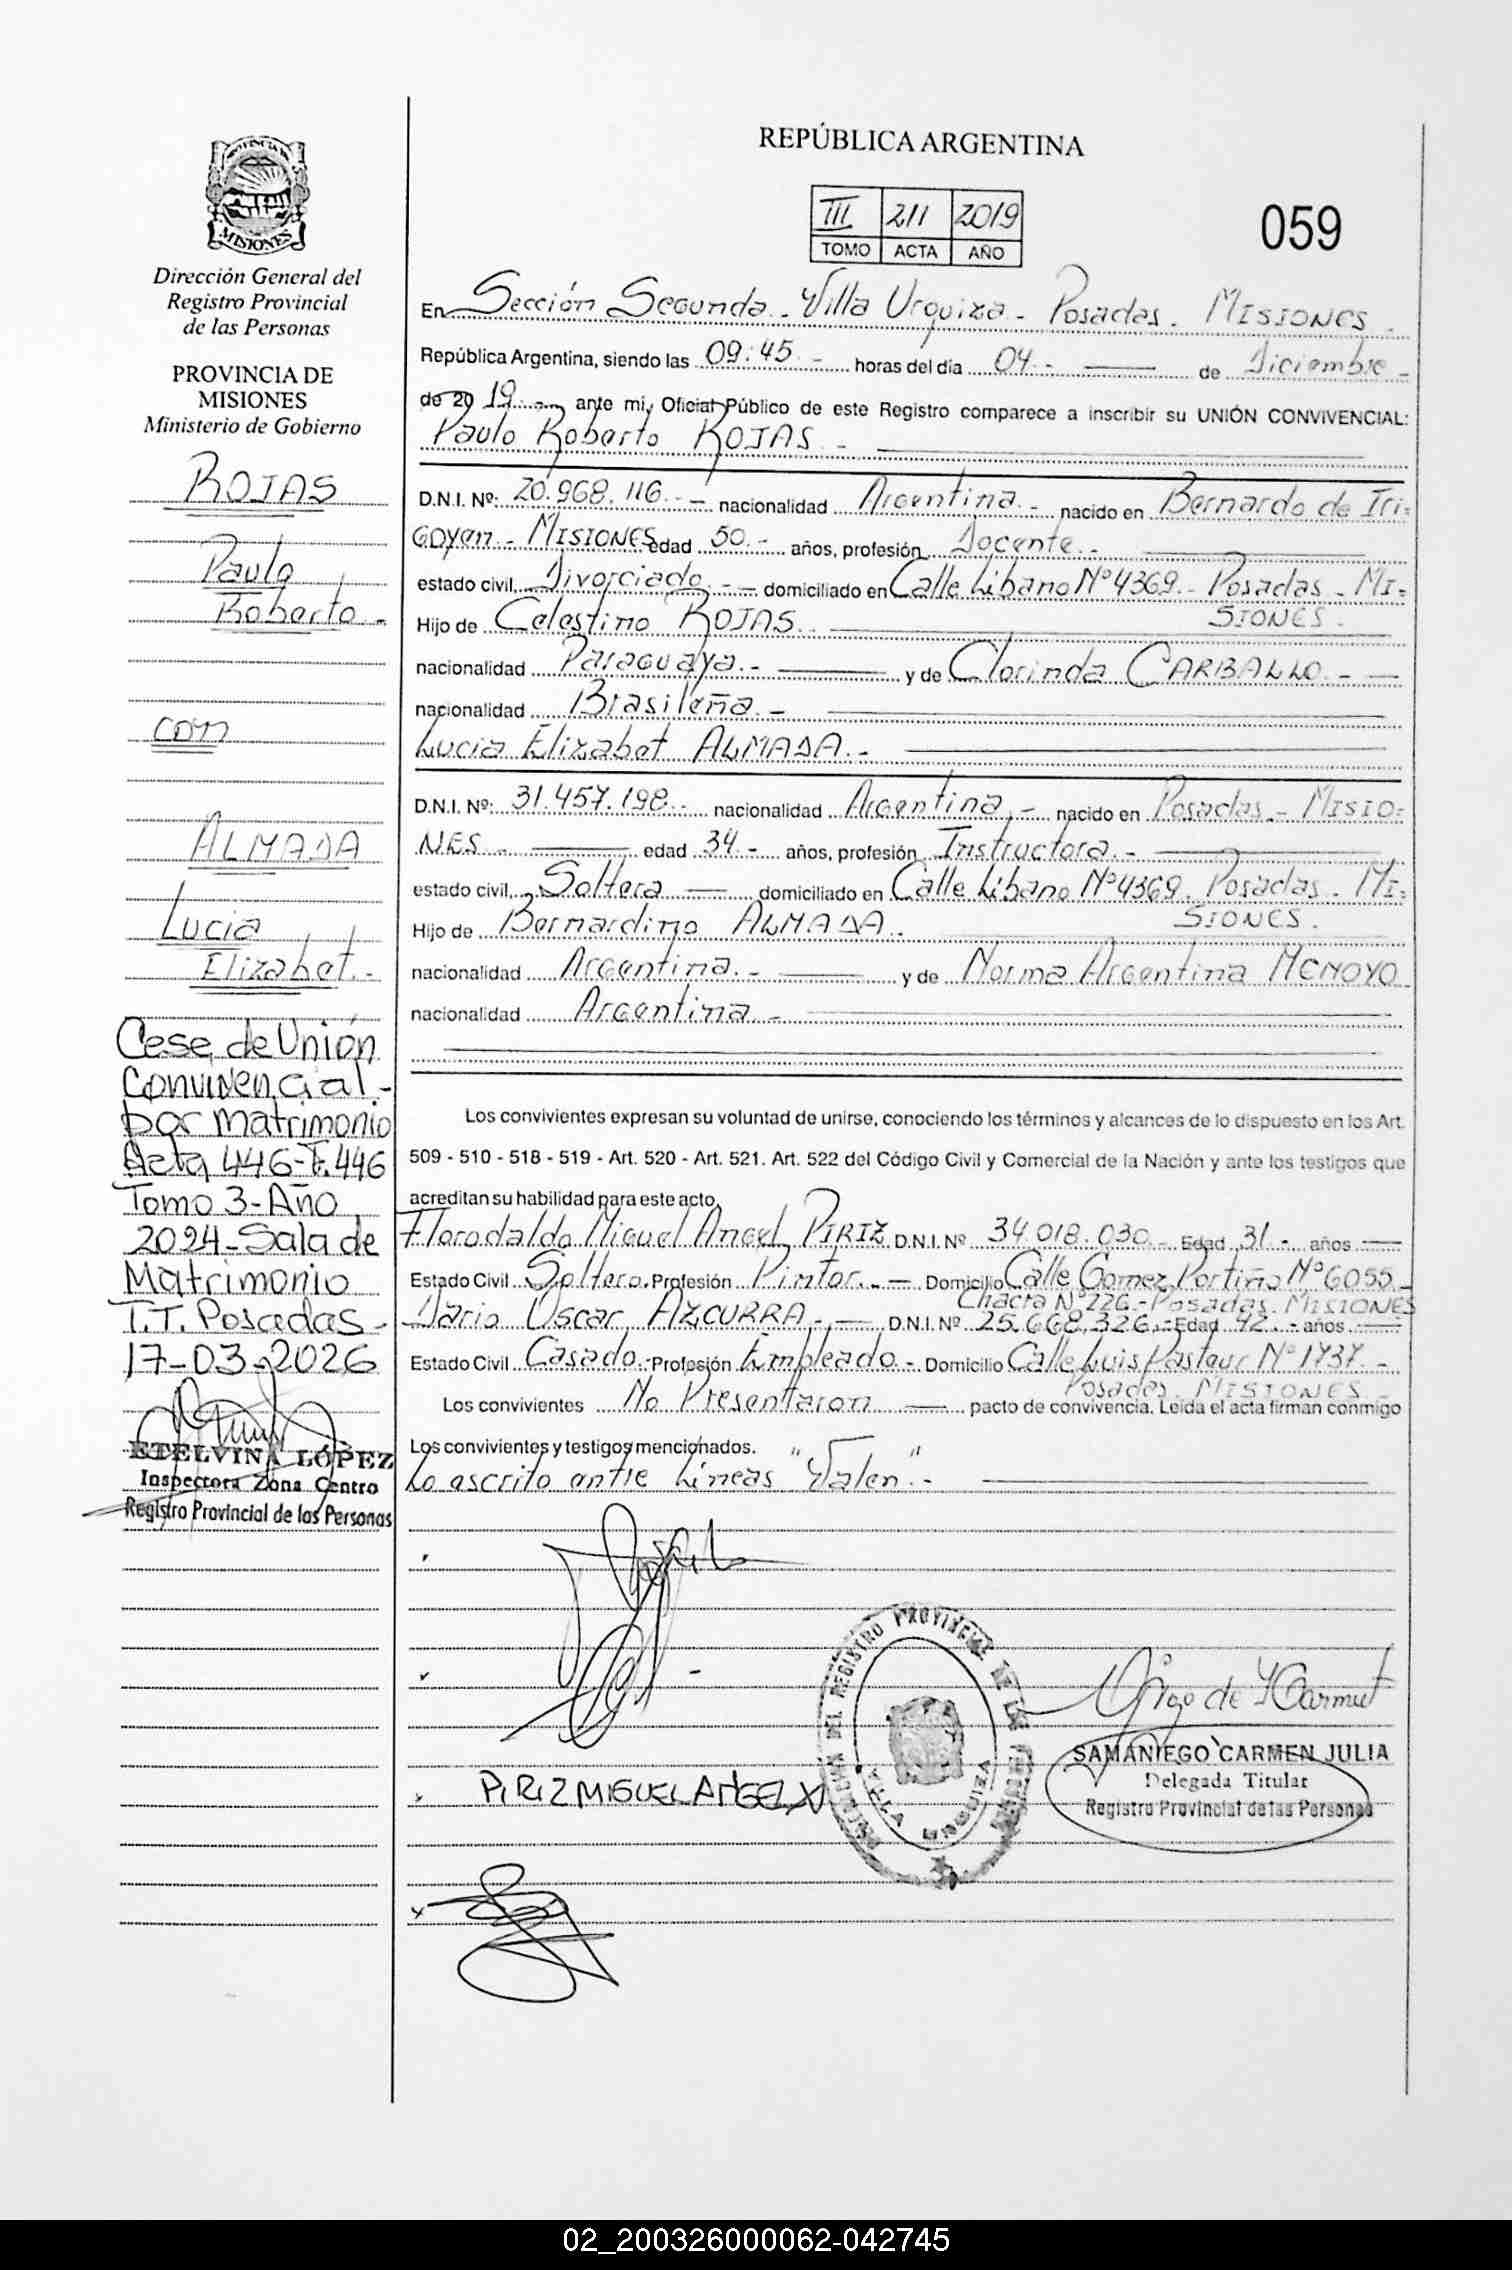 REPÚBLICA ARGENTINA
III 211 2019
TOMO ACTA AÑO
059
PROVINCIA DE MISIONES
Dirección General del
Registro Provincial
de las Personas
PROVINCIA DE
MISIONES
Ministerio de Gobierno
ROJAS
Paulo
Roberto.-
con
ALMADA
Lucia
Elizabet.-
Cese de Unión
Convivencial-
por matrimonio
Acta 446-F.446
Tomo 3-Año
2024-Sala de
Matrimonio
T.T. Posadas-
17-03-2026
ETELVINA LÓPEZ
Inspectora Zona Centro
Registro Provincial de las Personas
En Sección Segunda.- Villa Urquiza - Posadas. MISIONES.
República Argentina, siendo las 09:45.- horas del día 04.- de Diciembre-
de 2019.- ante mi, Oficial Público de este Registro comparece a inscribir su UNIÓN CONVIVENCIAL:
Paulo Roberto ROJAS.-
D.N.I. Nº: 20.968.116.- nacionalidad Argentina.- nacido en Bernardo de Iri=
goyen.- MISIONES edad 50.- años, profesión Docente.-
estado civil Divorciado.- domiciliado en Calle Libano Nº4369.- Posadas - MI=
SIONES.
Hijo de Celestino ROJAS.
nacionalidad Paraguaya.- y de Clorinda CARBALLO.-
nacionalidad Brasileña.-
Lucia Elizabet ALMADA.-
D.N.I. Nº: 31.457.198.- nacionalidad Argentina.- nacido en Posadas.- MISIO=
NES.- edad 34.- años, profesión Instructora.-
estado civil Soltera domiciliado en Calle Libano Nº4369. Posadas. MI=
SIONES.
Hijo de Bernardino ALMADA.
nacionalidad Argentina.- y de Norma Argentina MENOYO
nacionalidad Argentina.-
Los convivientes expresan su voluntad de unirse, conociendo los términos y alcances de lo dispuesto en los Art.
509 - 510 - 518 - 519 - Art. 520 - Art. 521. Art. 522 del Código Civil y Comercial de la Nación y ante los testigos que
acreditan su habilidad para este acto.
Florodaldo Miguel Angel PIRIZ D.N.I. Nº 34.018.030.- Edad 31.- años
Estado Civil Soltero. Profesión Pintor.- Domicilio Calle Gomez Portiño Nº6055-
Chacra Nº226.- Posadas. MISIONES
Dario Oscar AZCURRA.- D.N.I. Nº 25.668.326.- Edad 42.- años
Estado Civil Casado.- Profesión Empleado.- Domicilio Calle Luis Pasteur Nº1737.-
Posadas. MISIONES.-
Los convivientes No Presentaron pacto de convivencia. Leída el acta firman conmigo
Los convivientes y testigos mencionados.
Lo escrito entre Líneas "Valen".-
PIRIZ MIGUEL ANGEL
REGISTRO PROVINCIAL DE LAS PERSONAS
VILLA URQUIZA
SAMANIEGO CARMEN JULIA
Delegada Titular
Registro Provincial de las Personas
02_200326000062-042745